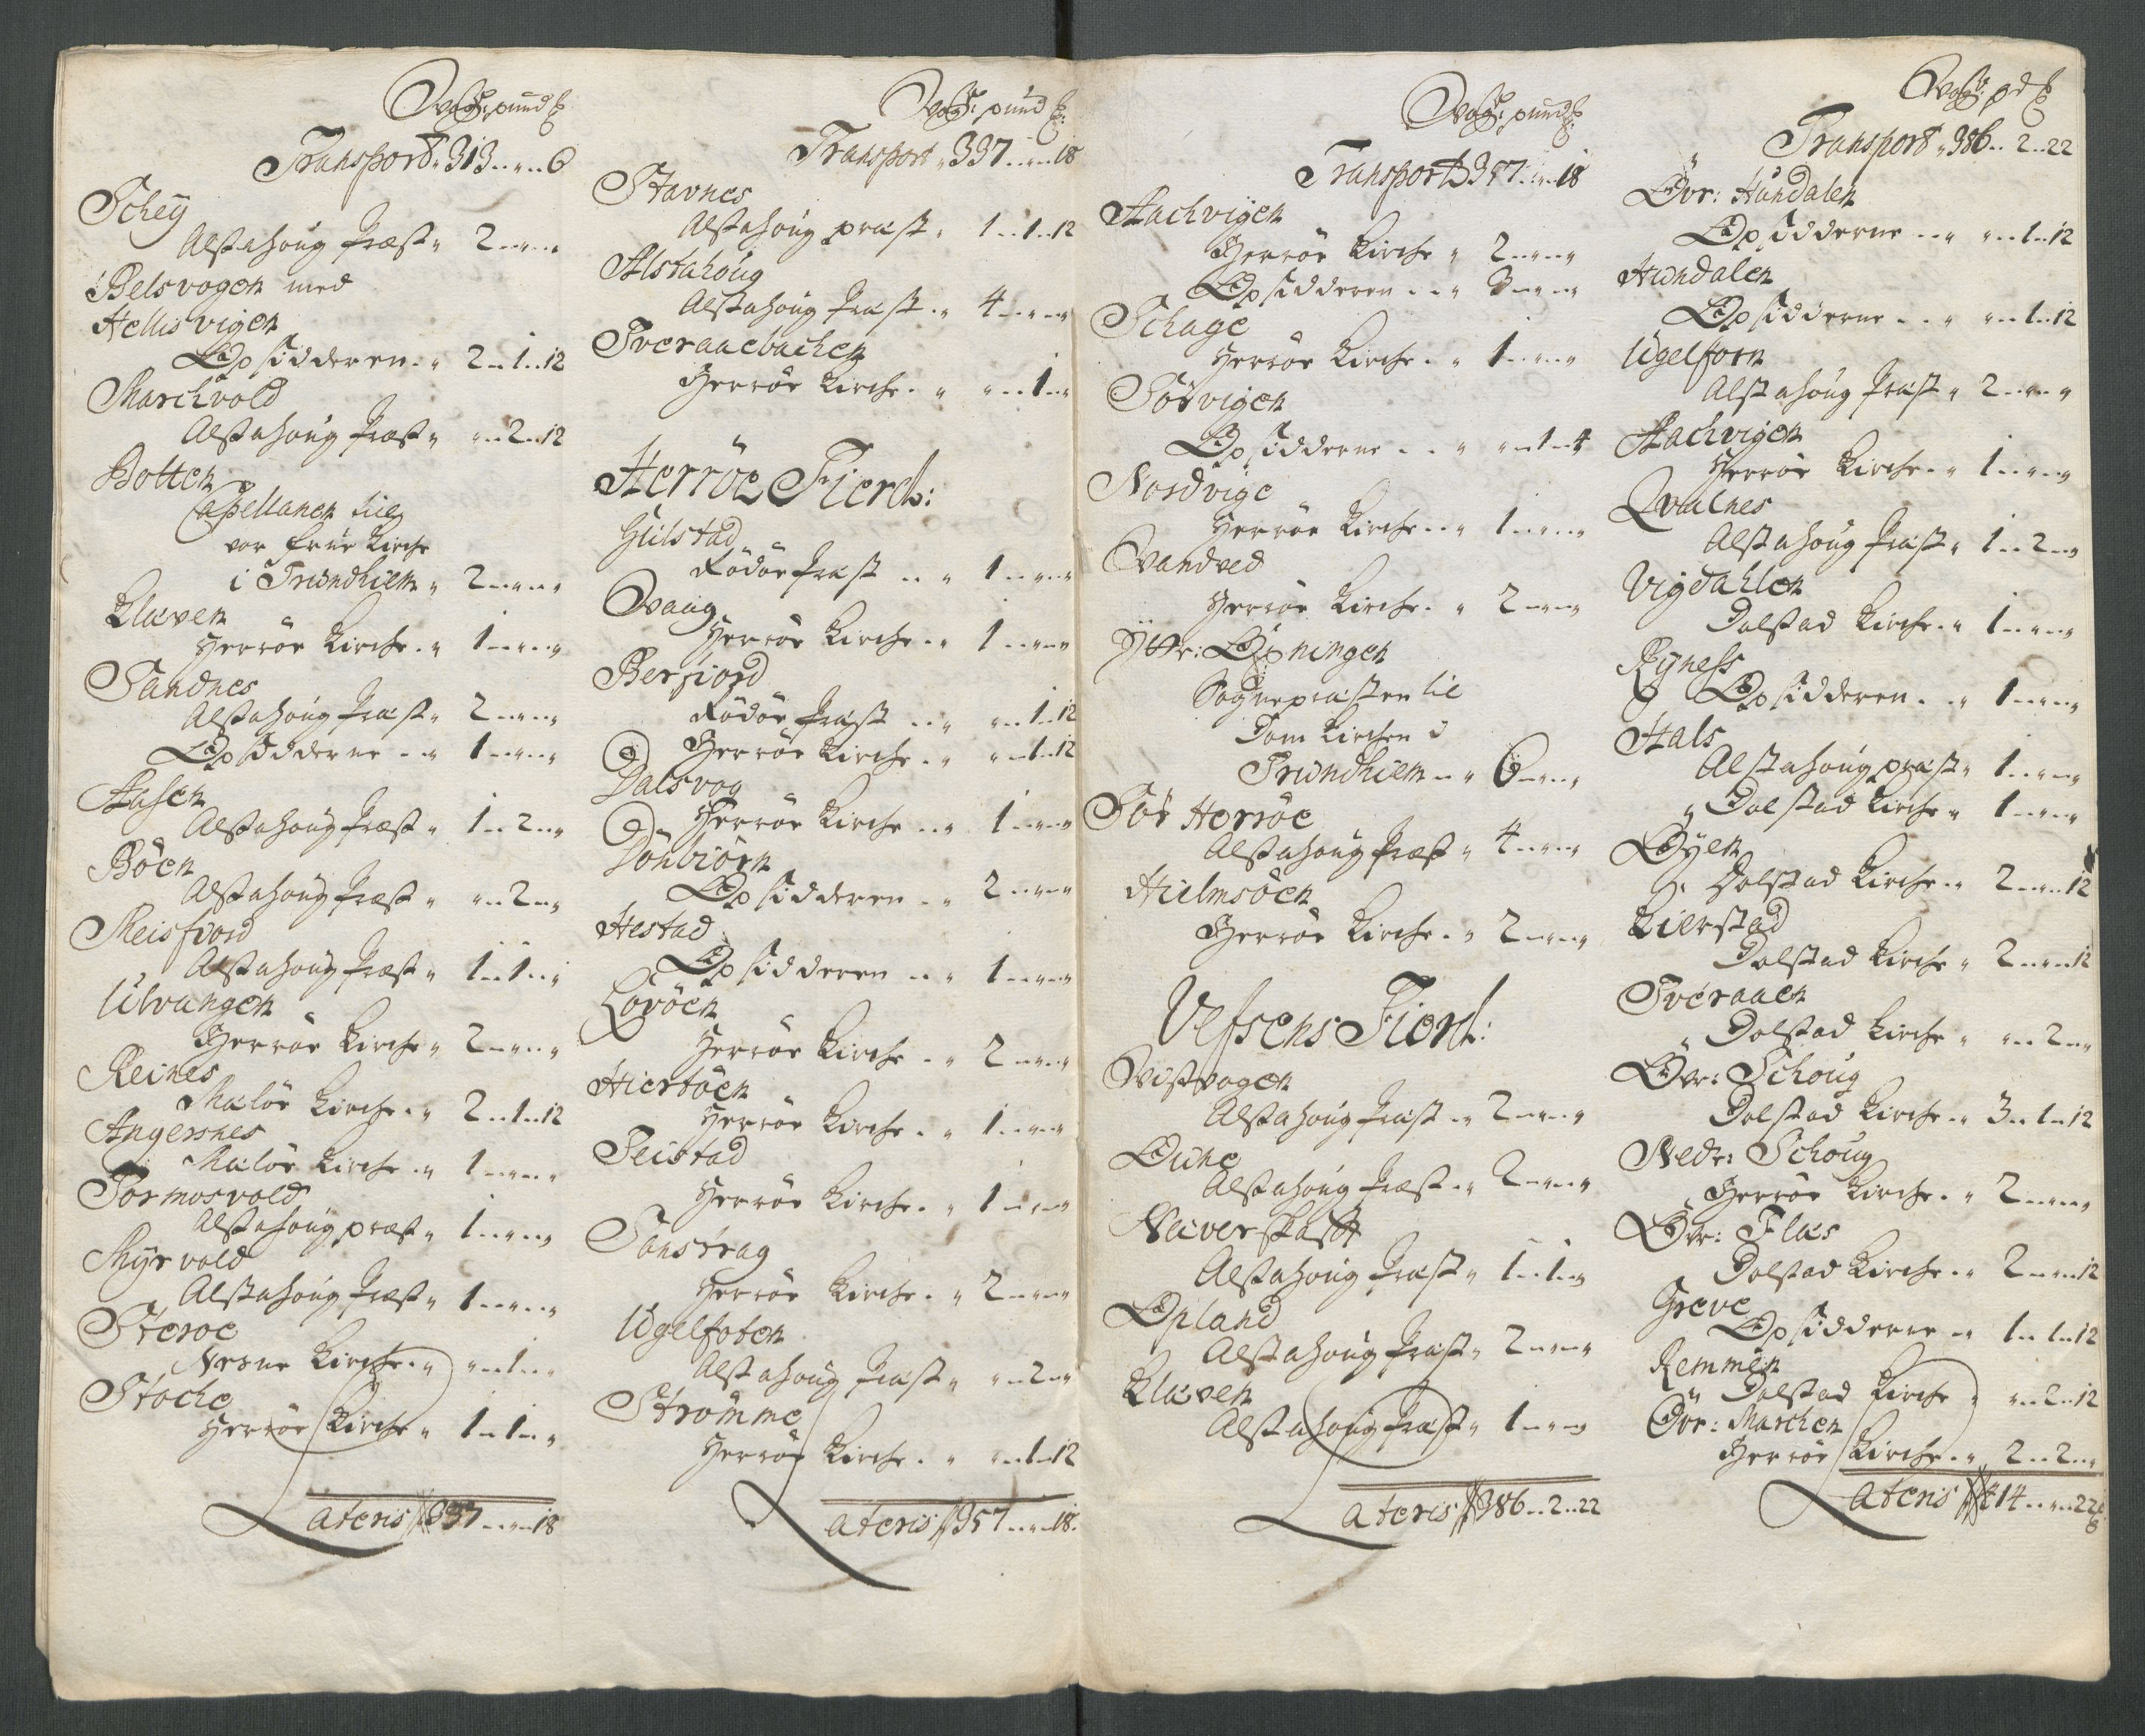 Woge: pund ℔
Transport „ 313 „ „ 6
Schey
Alstahoug Præst „ 2 „ „
Belsvogen med
Hellisvigen
Opsidderen „ 2 „ 1 „ 12
Marchvold
Alstahoug Præst „ „ 2 „ 12
Botten
Capellanen til
vor frue Kirche
i Trundhiem „ 2 „ „
Klæven
Herröe Kirche „ 1 „ „
Sandnes
Alstahoug Præst „ 2 „ „
Opsidderne „ 1 „ „
Aasen
Alstahoug Præst „ 1 „ 2 „
Böen
Alstahoug Præst „ „ 2 „
Meisfiord
Alstahoug Præst „ 1 „ 1 „
Ulvangen
Herröe Kirche „ 2 „ „
Reines
Meløe Kirche „ 2 „ 1 „ 12
Angersnes
Meløe Kirche „ 1 „ „
Tormosvold
Alstahoug præst „ 1 „ „
Myrvold
Alstahoug Præst „ 1 „ „
Steroe
Nesne Kirche „ „ 1 „
Stoche
Herröe Kirche „ 1 „ 1 „
Lateris 337 „ „ 18
Woge: pund ℔:
Transport „ 337 „ „ 18
Stavnes
Alstahoug præst „ 1 „ 1 „ 12
Alstahoug
Alstahoug Præst „ 4 „ „
Tveraaebachen
Herröe Kirche „ „ 1 „
Herröe Fierd:
Gulstad
Rödöe Præst „ 1 „ „
Waag
Herröe Kirche „ 1 „ „
Berfiord
Rödöe Præst „ „ 1 „ 12
Herröe Kirche „ „ 1 „ 12
Dalsvog
Herröe Kirche „ 1 „ „
Dönbiörn
Opsidderen „ 2 „ „
Hestad
Opsidderen „ 1 „ „
Lovöen
Herröe Kirche „ 2 „ „
Hiertöen
Herröe Kirche „ 1 „ „
Teistad
Herröe Kirche „ 1 „ „
Tanstrag
Herröe Kirche „ 2 „ „
Ugelfoten
Alstahoug Præst „ „ 2 „
Strömme
Herröe Kirche „ „ 1 „ 12
Lateris 357 „ „ 18
Woge: pund ℔:
Transport 357 „ „ 18
Aachvigen
Herröe Kirche „ 2 „ „
Opsidderen „ 3 „ „
Schage
Herröe Kirche „ 1 „ „
Sörvigen
Opsidderne „ „ 1 „ 4
Nordvige
Herröe Kirche „ 1 „ „
Vandved
Herröe Kirche „ 2 „ „
Yttr: Öxningen
Sognepræsten til
Dom Kirchen i
Trundhiem „ 6 „ „
Sör Herröe
Alstahoug Præst „ 4 „ „
Hielmsöen
Herröe Kirche „ 2 „ „
Vefsens Fiord:
Vistvogen
Alstahoug Præst „ 2 „ „
Dune
Alstahoug Præst „ 2 „ „
Næverskatt
Alstahoug Præst „ 1 „ 1 „
Opland
Alstahoug Præst „ 2 „ „
Klæven
Alstahoug Præst „ 1 „ „
Lateris 386 „ 2 „ 22
Woge: pd ℔
Transport „ 386 „ 2 „ 22
Övr: Hundalen
Opsidderne „ „ 1 „ 12
Hundalen
Opsidderne „ „ 1 „ 12
Ugelforn
Alstahoug Præst „ 2 „ „
Aachvigen
Herröe Kirche „ 1 „ „
Qvalnes
Alstahoug Præst „ 1 „ 2 „
Vigdahlen
Dolstad Kirche „ 1 „ „
Ryness
Opsidderen „ 1 „ „
Hals
Alstahoug præst „ 1 „ „
Dolstad Kirche „ 1 „ „
Öyen
Dolstad Kirche „ 2 „ „ 12
Kierstad
Dolstad Kirche „ 2 „ „ 12
Tveraaen
Dolstad Kirche „ „ 2 „
Övr: Schoug
Dolstad Kirche „ 3 „ 1 „ 12
Nedr: Schoug
Herröe Kirche „ 2 „ „
Övr: Flæs
Dolstad Kirche „ 2 „ „ 12
Greve
Opsidderne „ 1 „ 1 „ 12
Remmen
Dolstad Kirche „ „ 2 „ 12
Övr: Marchen
Herröe Kirche „ 2 „ 2 „
Lateris 414 „ „ 22